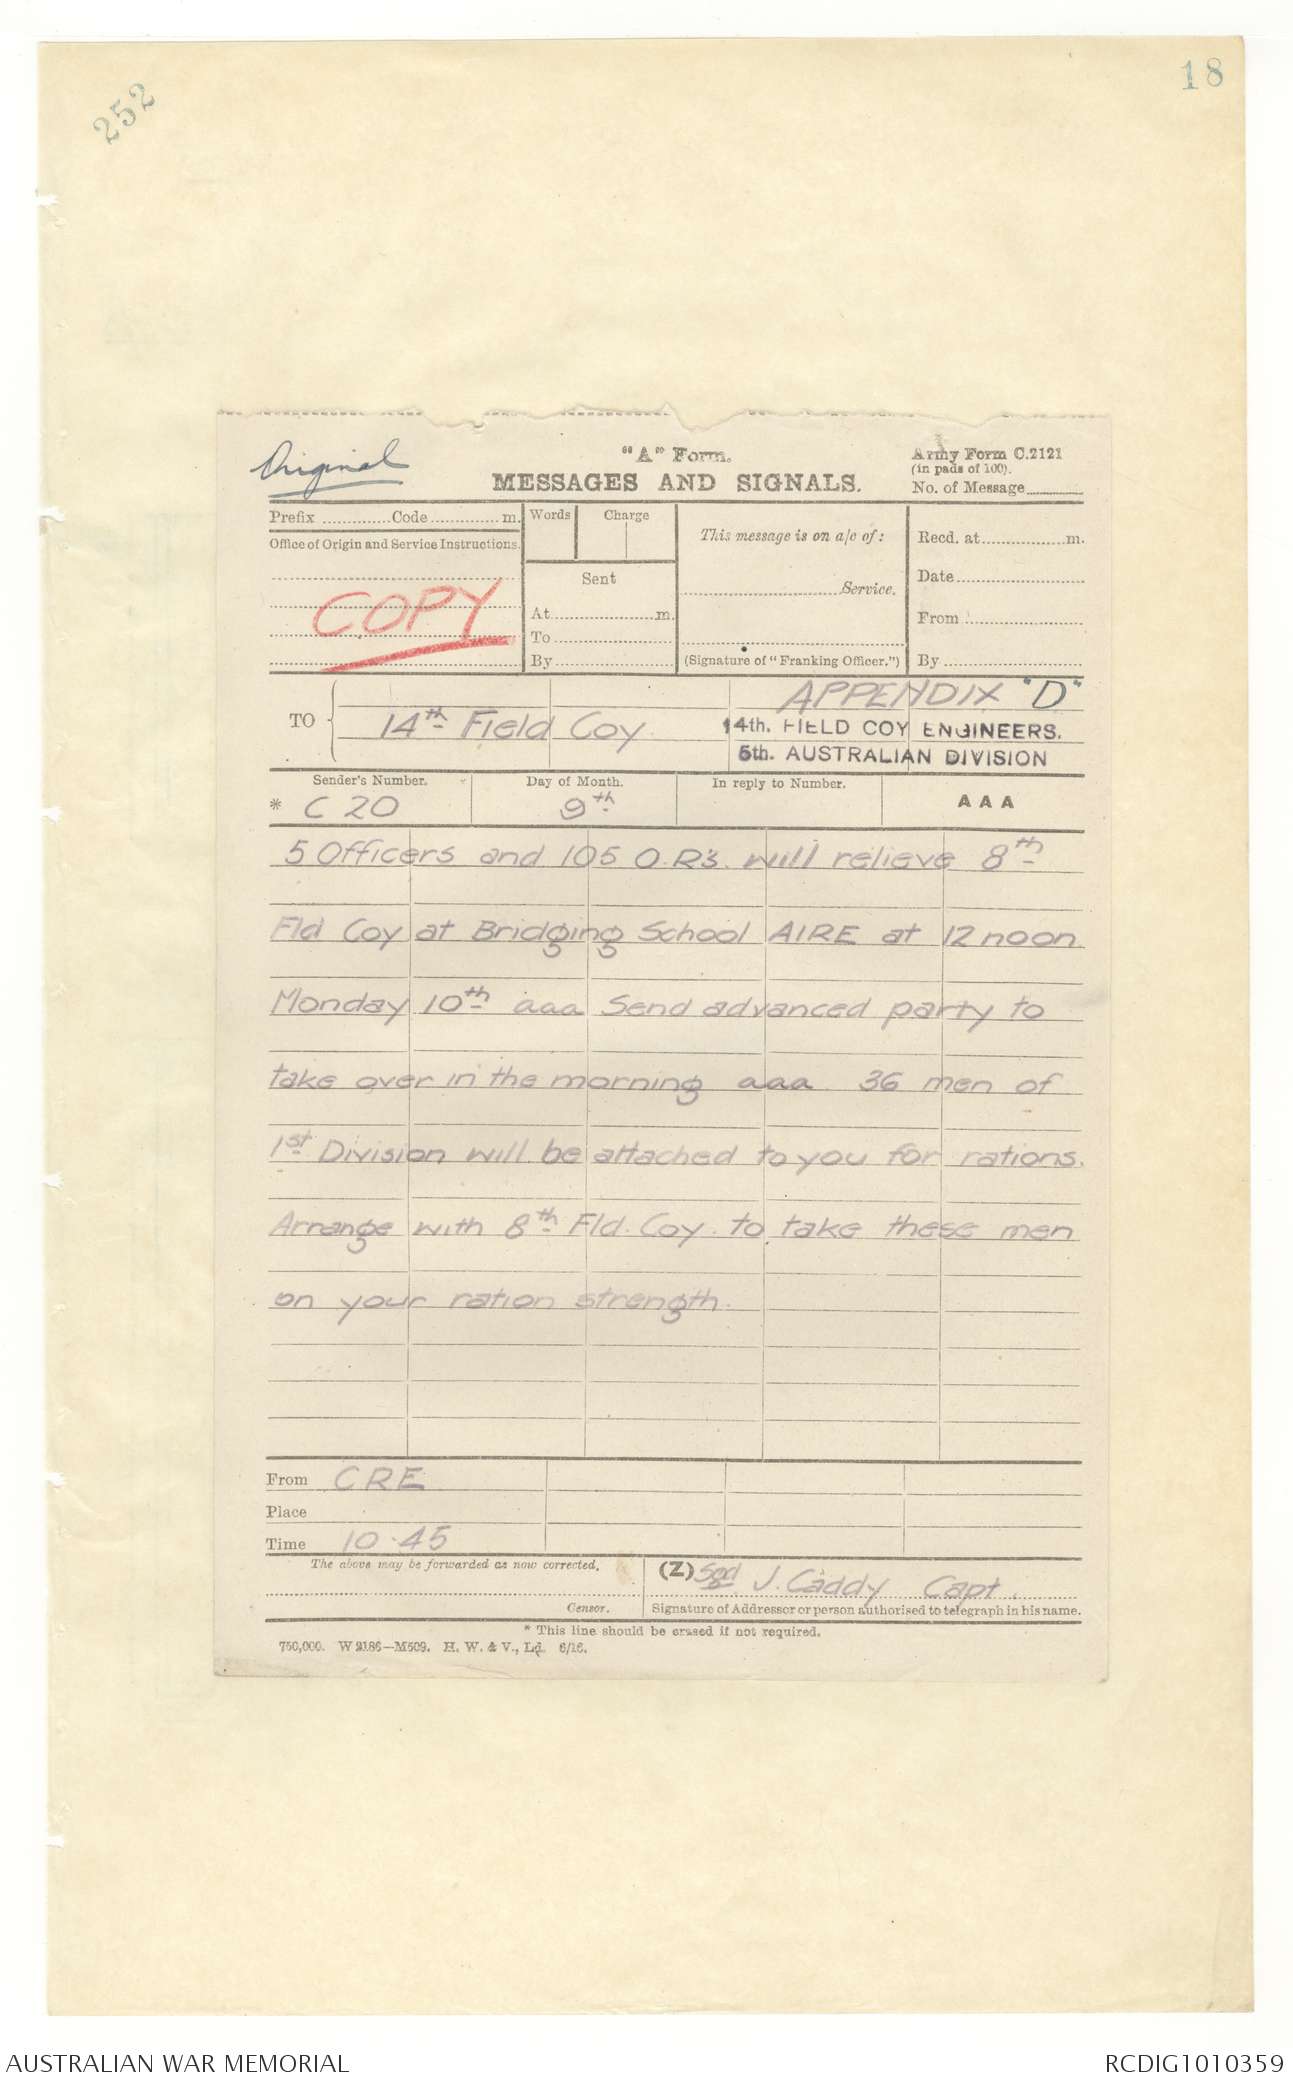 252
18
Original
"A" Form.
MESSAGES AND SIGNALS.
Army Form C.2121
(in pads of 100).
No. of Message
Prefix Code m.
Words Charge
This message is on a/c of:
Recd. at m.
Office of Origin and Service Instructions.
COPY
Sent
At m.
To
By
Service.
(Signature of "Franking Officer.")
Date
From
By
APPENDIX "D"
TO 14th Field Coy
14th. FIELD COY ENGINEERS.
5th. AUSTRALIAN DIVISION
Sender's Number. Day of Month. In reply to Number.
* C 20 9th AAA
5 Officers and 105 O.R's. will relieve 8th
Fld Coy at Bridging School AIRE at 12 noon
Monday 10th aaa Send advanced party to
take over in the morning aaa 36 men of
1st Division will be attached to you for rations.
Arrange with 8th Fld. Coy. to take these men
on your ration strength.
From CRE
Place
Time 10.45
The above may be forwarded as now corrected.
(Z) Sgd J. Caddy Capt.
Censor.
Signature of Addressor or person authorised to telegraph in his name.
* This line should be erased if not required.
750,000. W 2186—M509. H. W. & V., Ld. 6/16.
AUSTRALIAN WAR MEMORIAL
RCDIG1010359